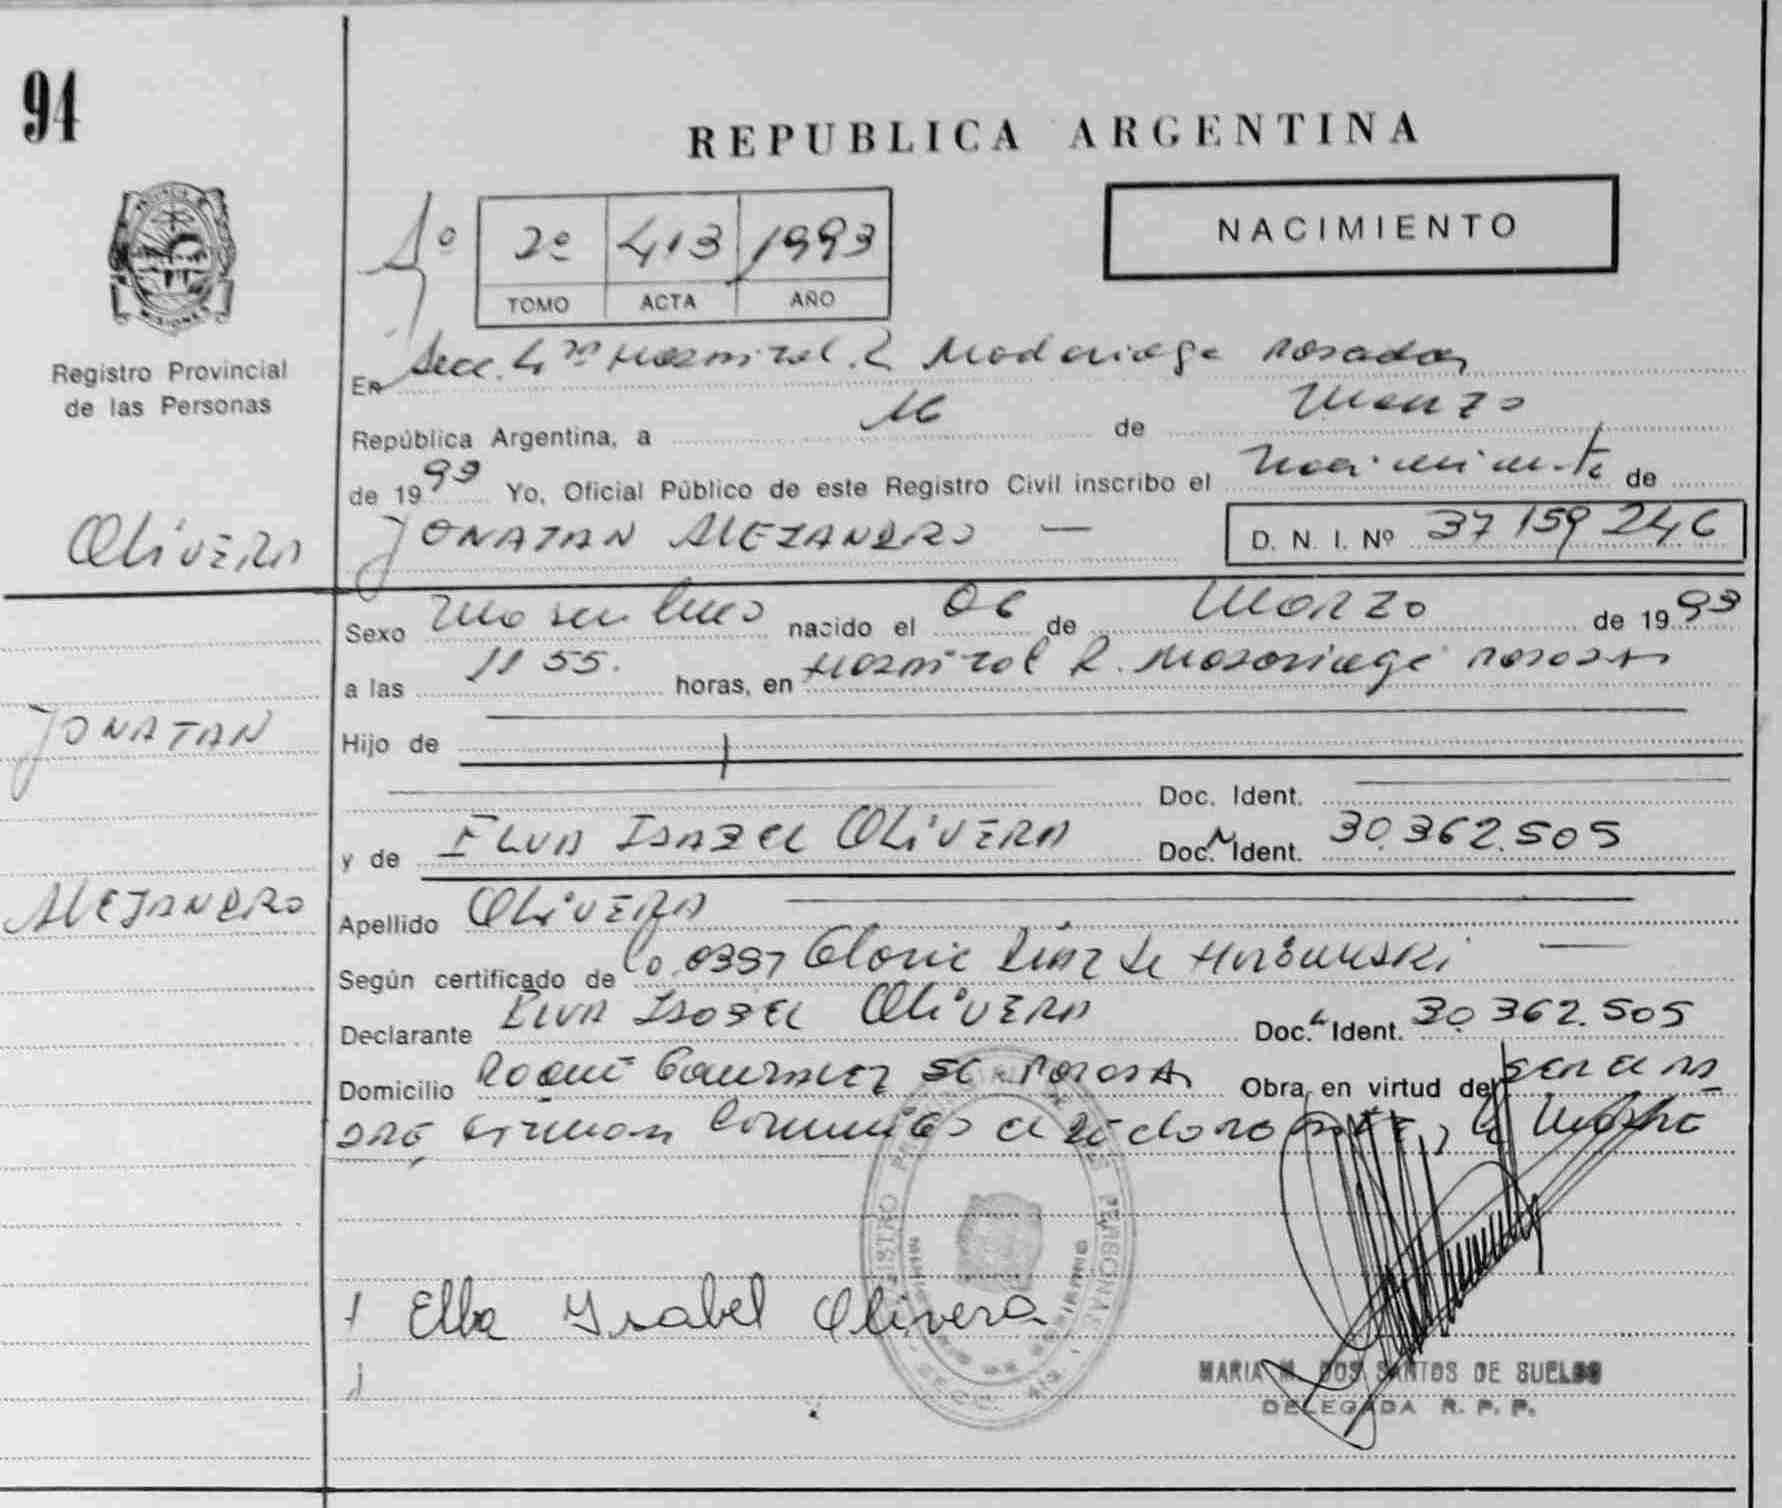 94
REPUBLICA ARGENTINA
NACIMIENTO
2º 413 1993
TOMO ACTA AÑO
Registro Provincial
de las Personas
En Secc. 4ta Hospital R Madariaga Posadas
República Argentina, a 16 de Marzo
de 1993 Yo, Oficial Público de este Registro Civil inscribo el Nacimiento de
OLIVERA
JONATAN ALEJANDRO —
D. N. I. Nº 37 159 246
Sexo Masculino nacido el 06 de Marzo de 1993
a las 11 55. horas, en Hospital R. Madariaga Posadas
JONATAN
Hijo de
Doc. Ident.
y de ELVA ISABEL OLIVERA Doc. Ident. 30.362.505
ALEJANDRO
Apellido OLIVERA
Según certificado de Co. 0397 Gloria de
Declarante ELVA ISABEL OLIVERA Doc. Ident. 30.362.505
Domicilio Roque 56 Posadas Obra en virtud de
firman la
Elba Ysabel Olivera
MARIA M. DOS SANTOS DE SUELDO
DELEGADA R. P. P.